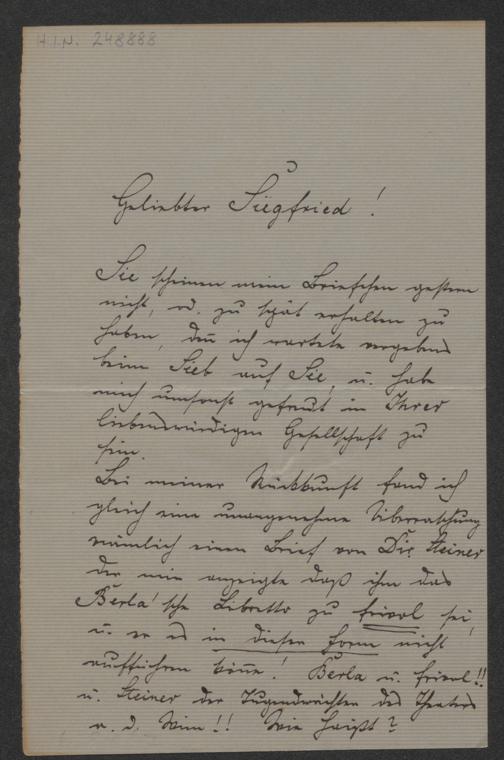 H.I.N. 248888
Geliebter Siegfried!
Sie scheinen mein Briefchen gestern
nicht, od. zu spät erhalten zu
haben, den̄ ich wartete vergebens
beim Sieb auf Sie, u. habe
mich umsonst gefreut in Ihrer
liebenswürdigen Gesellschaft zu
sein.
Bei meiner Rückkunft fand ich
gleich eine unangenehme Überraschung
nämlich einen Brief von Dir. Steiner
der mir anzeigte daß ihm das
Berla'sche Libretto zu frivol sei,
u. er es in dieser Form nicht
aufführen kön̄e! Berla u. frivol!!
u. Steiner der Tugendwächter des Theaters
a. d. Wien!! Wie haißt?